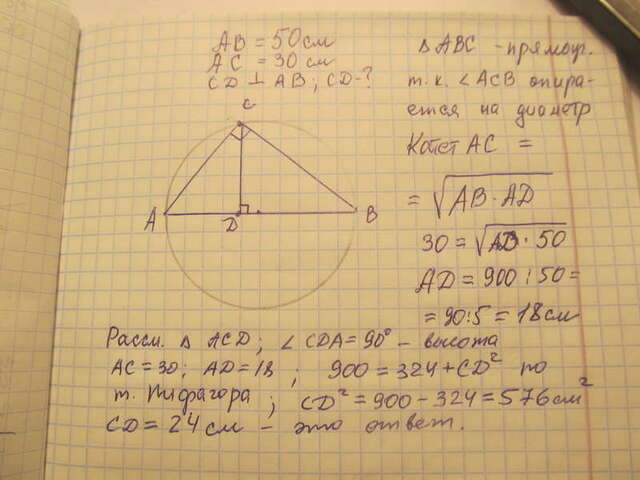 AB = 50 см
AC = 30 см
CD ⊥ AB; CD-?
C
A
D
B
Δ ABC - прямоуг.
т.к. ∠ACB опира-
ется на диаметр
Катет AC =
= √AB · AD
30 = √AD · 50
AD = 900 : 50 =
= 90:5 = 18 см
Рассм. Δ ACD; ∠ CDA = 90° - высота
AC = 30; AD = 18 ; 900 = 324 + CD² по
т. Пифагора ; CD² = 900 - 324 = 576 см²
CD = 24 см - это ответ.